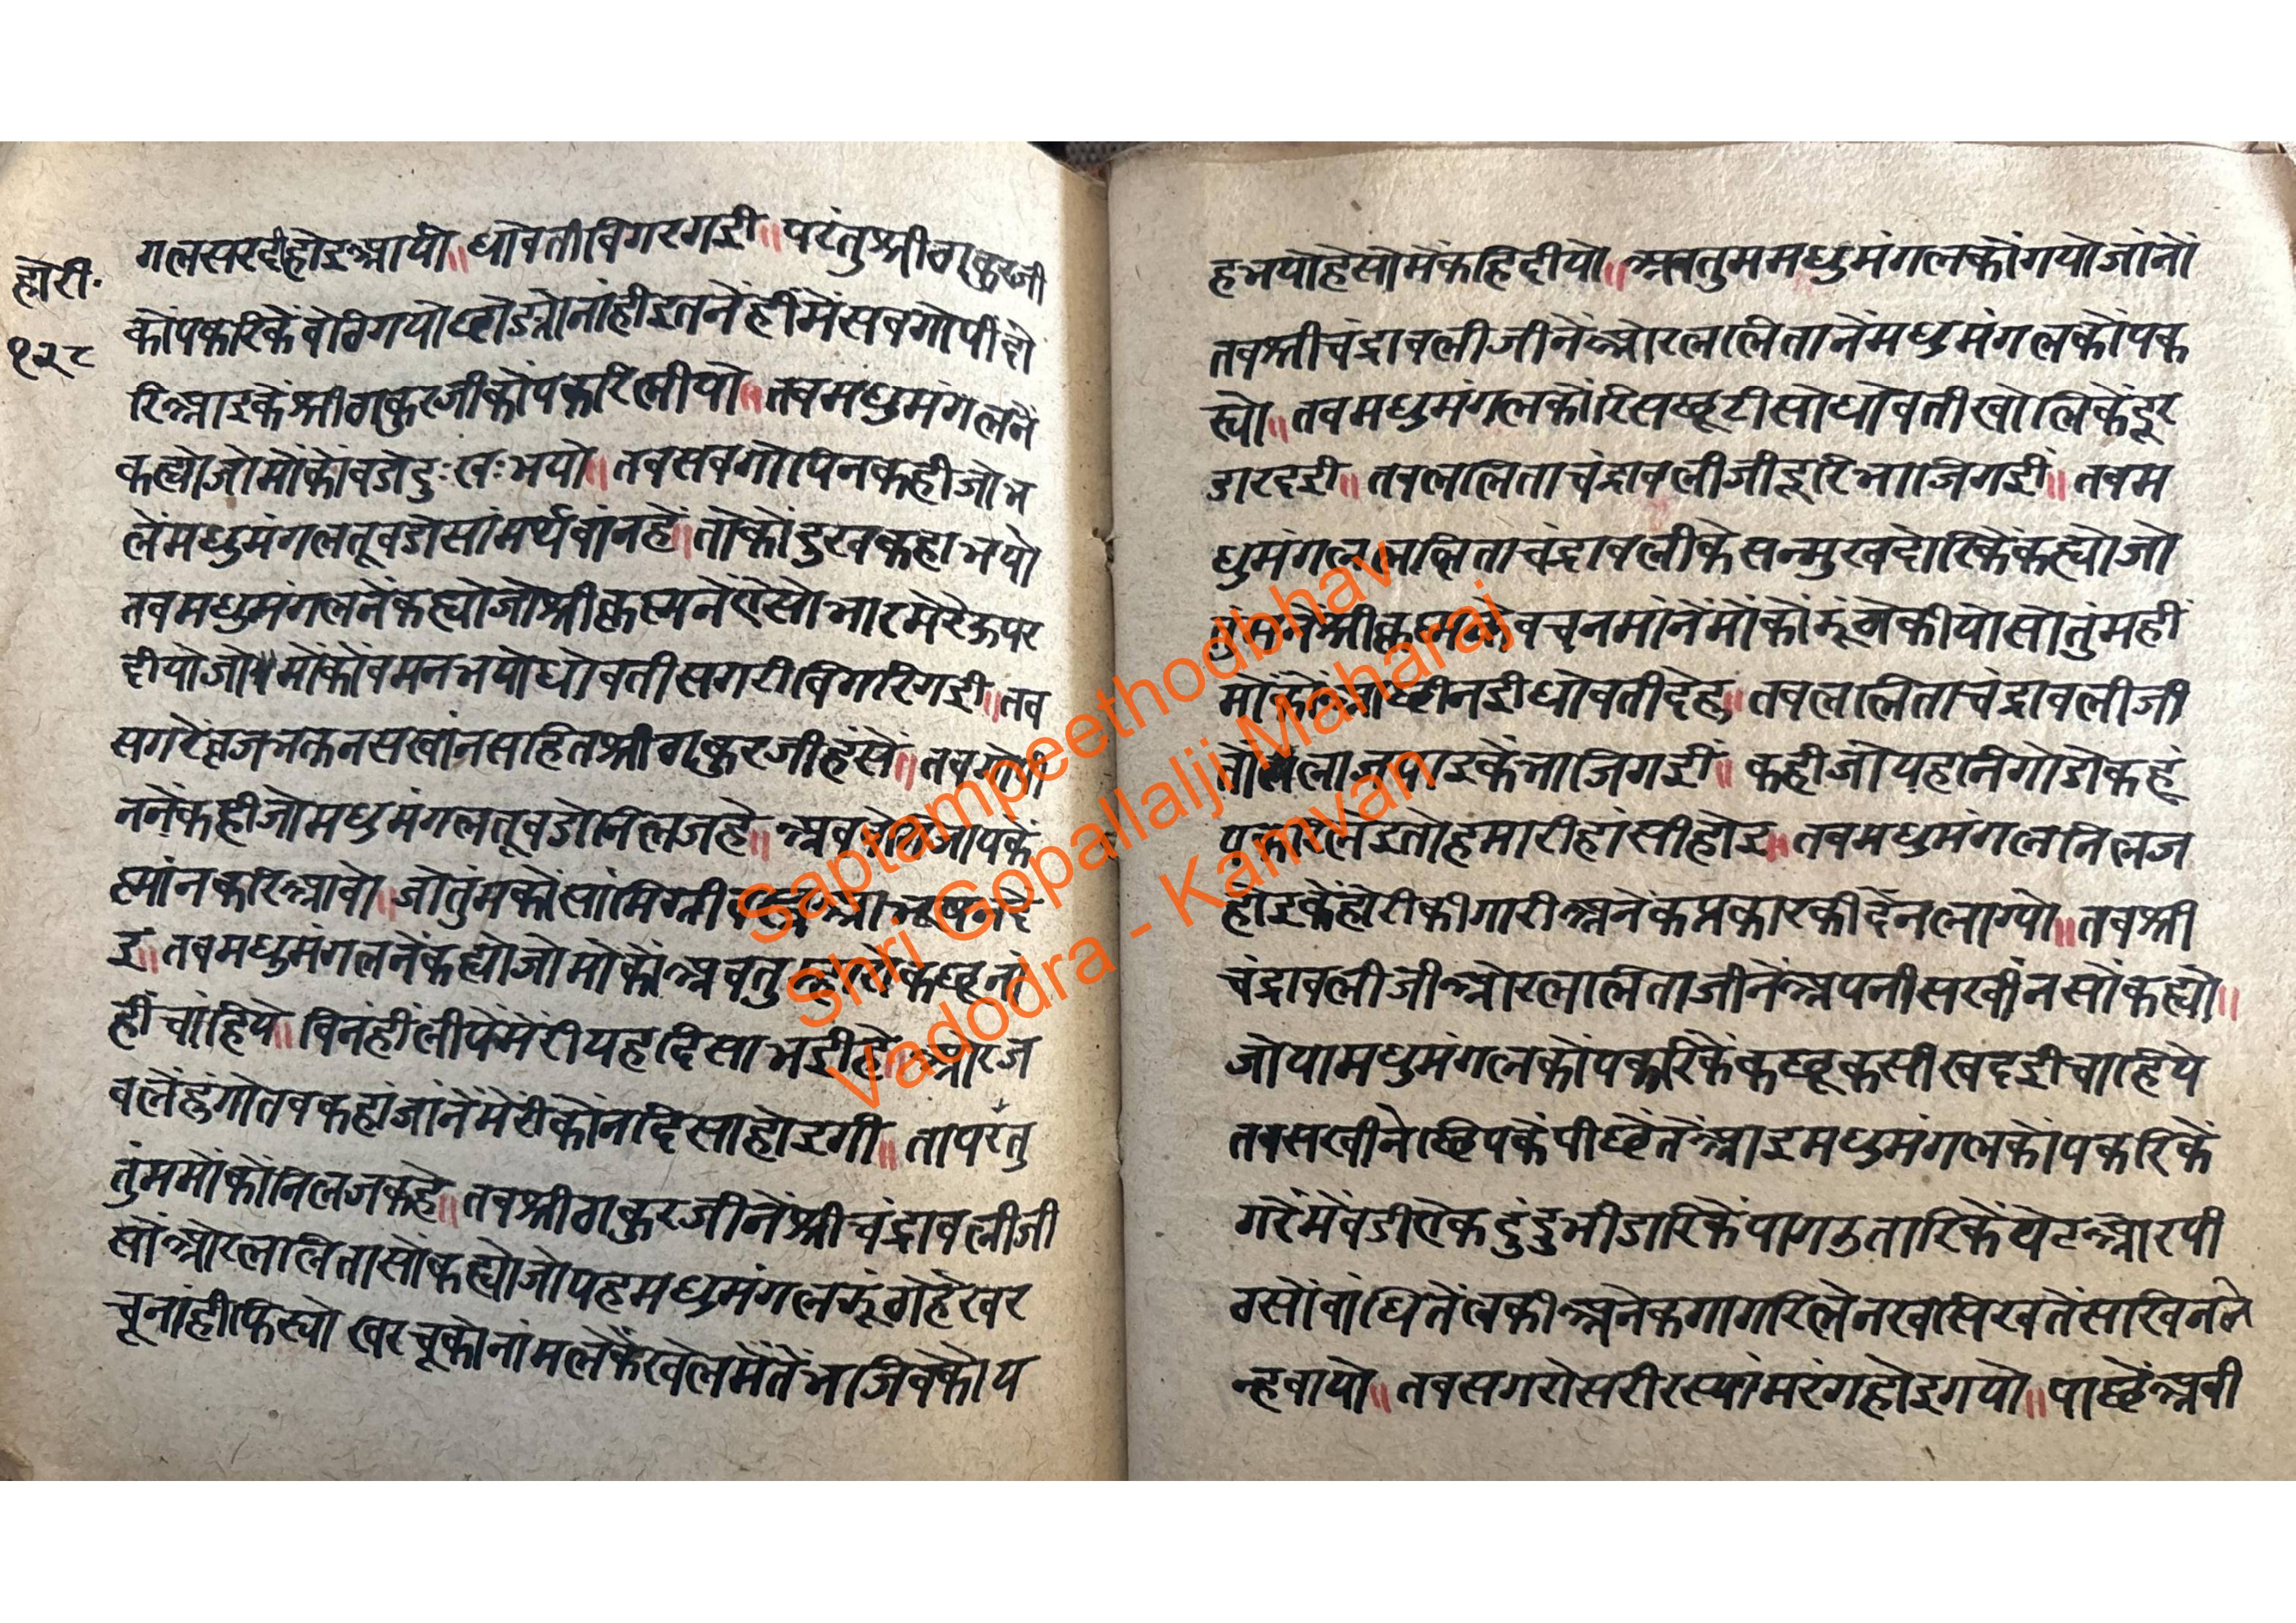 होरी.
१२८
गलसरदीहोइआयो॥ धोवतीविगरगई॥ परंतुश्रीठाकुरजी
कोंपकरिकेंवोठिगयोछोडयोनांहीइतनेंहींमेंसवगोपीदो
रिआइकेंश्रीठाकुरजीकोंपकरिलीयो॥ तवमधुमंगलनें
कह्योजोमोंकोंवडोदुःखःभयो॥ तवसवगोपिनकहीजोभ
लेंमधुमंगलतूवडोसांमर्थवांनहे॥ तोकोंदुखकहाभयो
तवमधुमंगलनेंकह्योजोश्रीकृष्णनेंऐसोभारमेरेऊपर
दीयोजोमोंकोंवमनभयोधोवतीसगरीविगरिगई॥ तव
सगरेव्रजभक्तनसखांनसहितश्रीठाकुरजीहंसे॥ तवगोपी
ननेंकहीजोमधुमंगलतूवडोनिलजहे॥ अव जायकें
स्नांनकरिआवो॥ जोतुंमकोंसांमिग्री दे
इ॥ तवमधुमंगलनेंकह्योजोमोकोंअवतु कछूनां
हींचांहिये॥ विनंहींलीयेंमेरीयहदिसाभईहे॥ ओरज
वलेंहुंगोतवकहांजांनेंमेरीकोंनदिसाहोइगी॥ तापरंतु
तुंममोंकोंनिलजकहे॥ तवश्रीठाकुरजीनेंश्रीचंद्रावलीजी
सोंओरललितासोंकह्योजोयहमधुमंगलझूंठोहेखर
चूनांहीकिस्यो खरचूकोनांमलेकेंखेलमेंतेंभाजिवेकोय
हभयोहेसोमेंकहिदीयो॥ अवतुममधुमंगलकोंगयोजांनों
तवश्रीचंद्रावलीजीनेंओरललितानेंमधुमंगलकोंपक
स्यो॥ तवमधुमंगलकोंरिसछूटीसोधोवतीखोलिकेंदूर
डारदई॥ तवललिताचंद्रावलीजीदूरिभाजिगई॥ तवम
धुमंगलललिताचंद्रावलीकेसन्मुखदोरिकेंकह्योजो
तुंमनेंश्रीकृष्णकेवचनमांनेंमोंकोंझूंठोकीयोसोतुंमहीं
मोकोंआछीनईधोवतीदेहु॥ तवललिताचंद्रावलीजी
तोलाजपाइकेंभाजिगई॥ कहीजोयहनिगोडोकहूं
पकरिलेइतोहमारीहांसीहोइ॥ तवमधुमंगलनिलज
होइकेंहोरीकीगारीअनेंकप्रकारकीदेंनलाग्यो॥ तवश्री
चंद्रावलीजीओरललिताजीनेंअपनीसखींनसोंकह्यो॥
जोयामधुमंगलकोंपकरिकेंकछूकसीखदईचाहिये
तवसखीनेछिपकेंपीछेंतेंआइमधुमंगलकोंपकरिकें
गरेंमेंवडीऐकदुंदुभीडारिकेंपागउतारिकेंपेटओरपी
ठसोंवांधितेंलकीअनेकगागरिलेनखसिखतेंसखिननें
न्हवायो॥ तवसगरोसरीरस्यांमरंगहोइगयो॥ पाछेंअवी